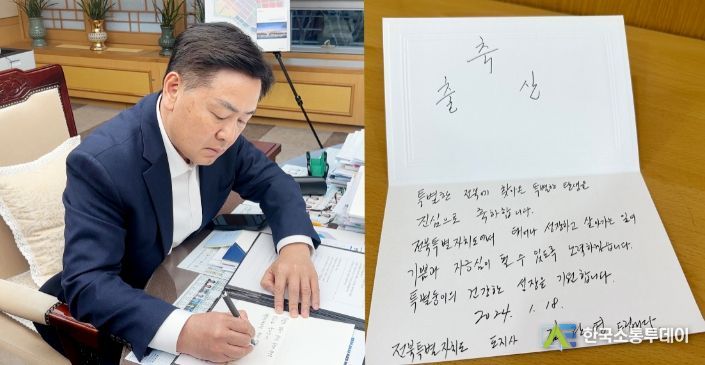 축
출 산
특별한 전북이 찾아온 특별한 탄생을
진심으로 축하합니다.
전북특별자치도에서 태어나 성장하고 살아가는 일이
기쁨과 자긍심이 될 수 있도록 노력하겠습니다.
특별둥이의 건강한 성장을 기원합니다.
2024. 1. 18.
전북특별자치도 도지사 드립니다
한국소통투데이